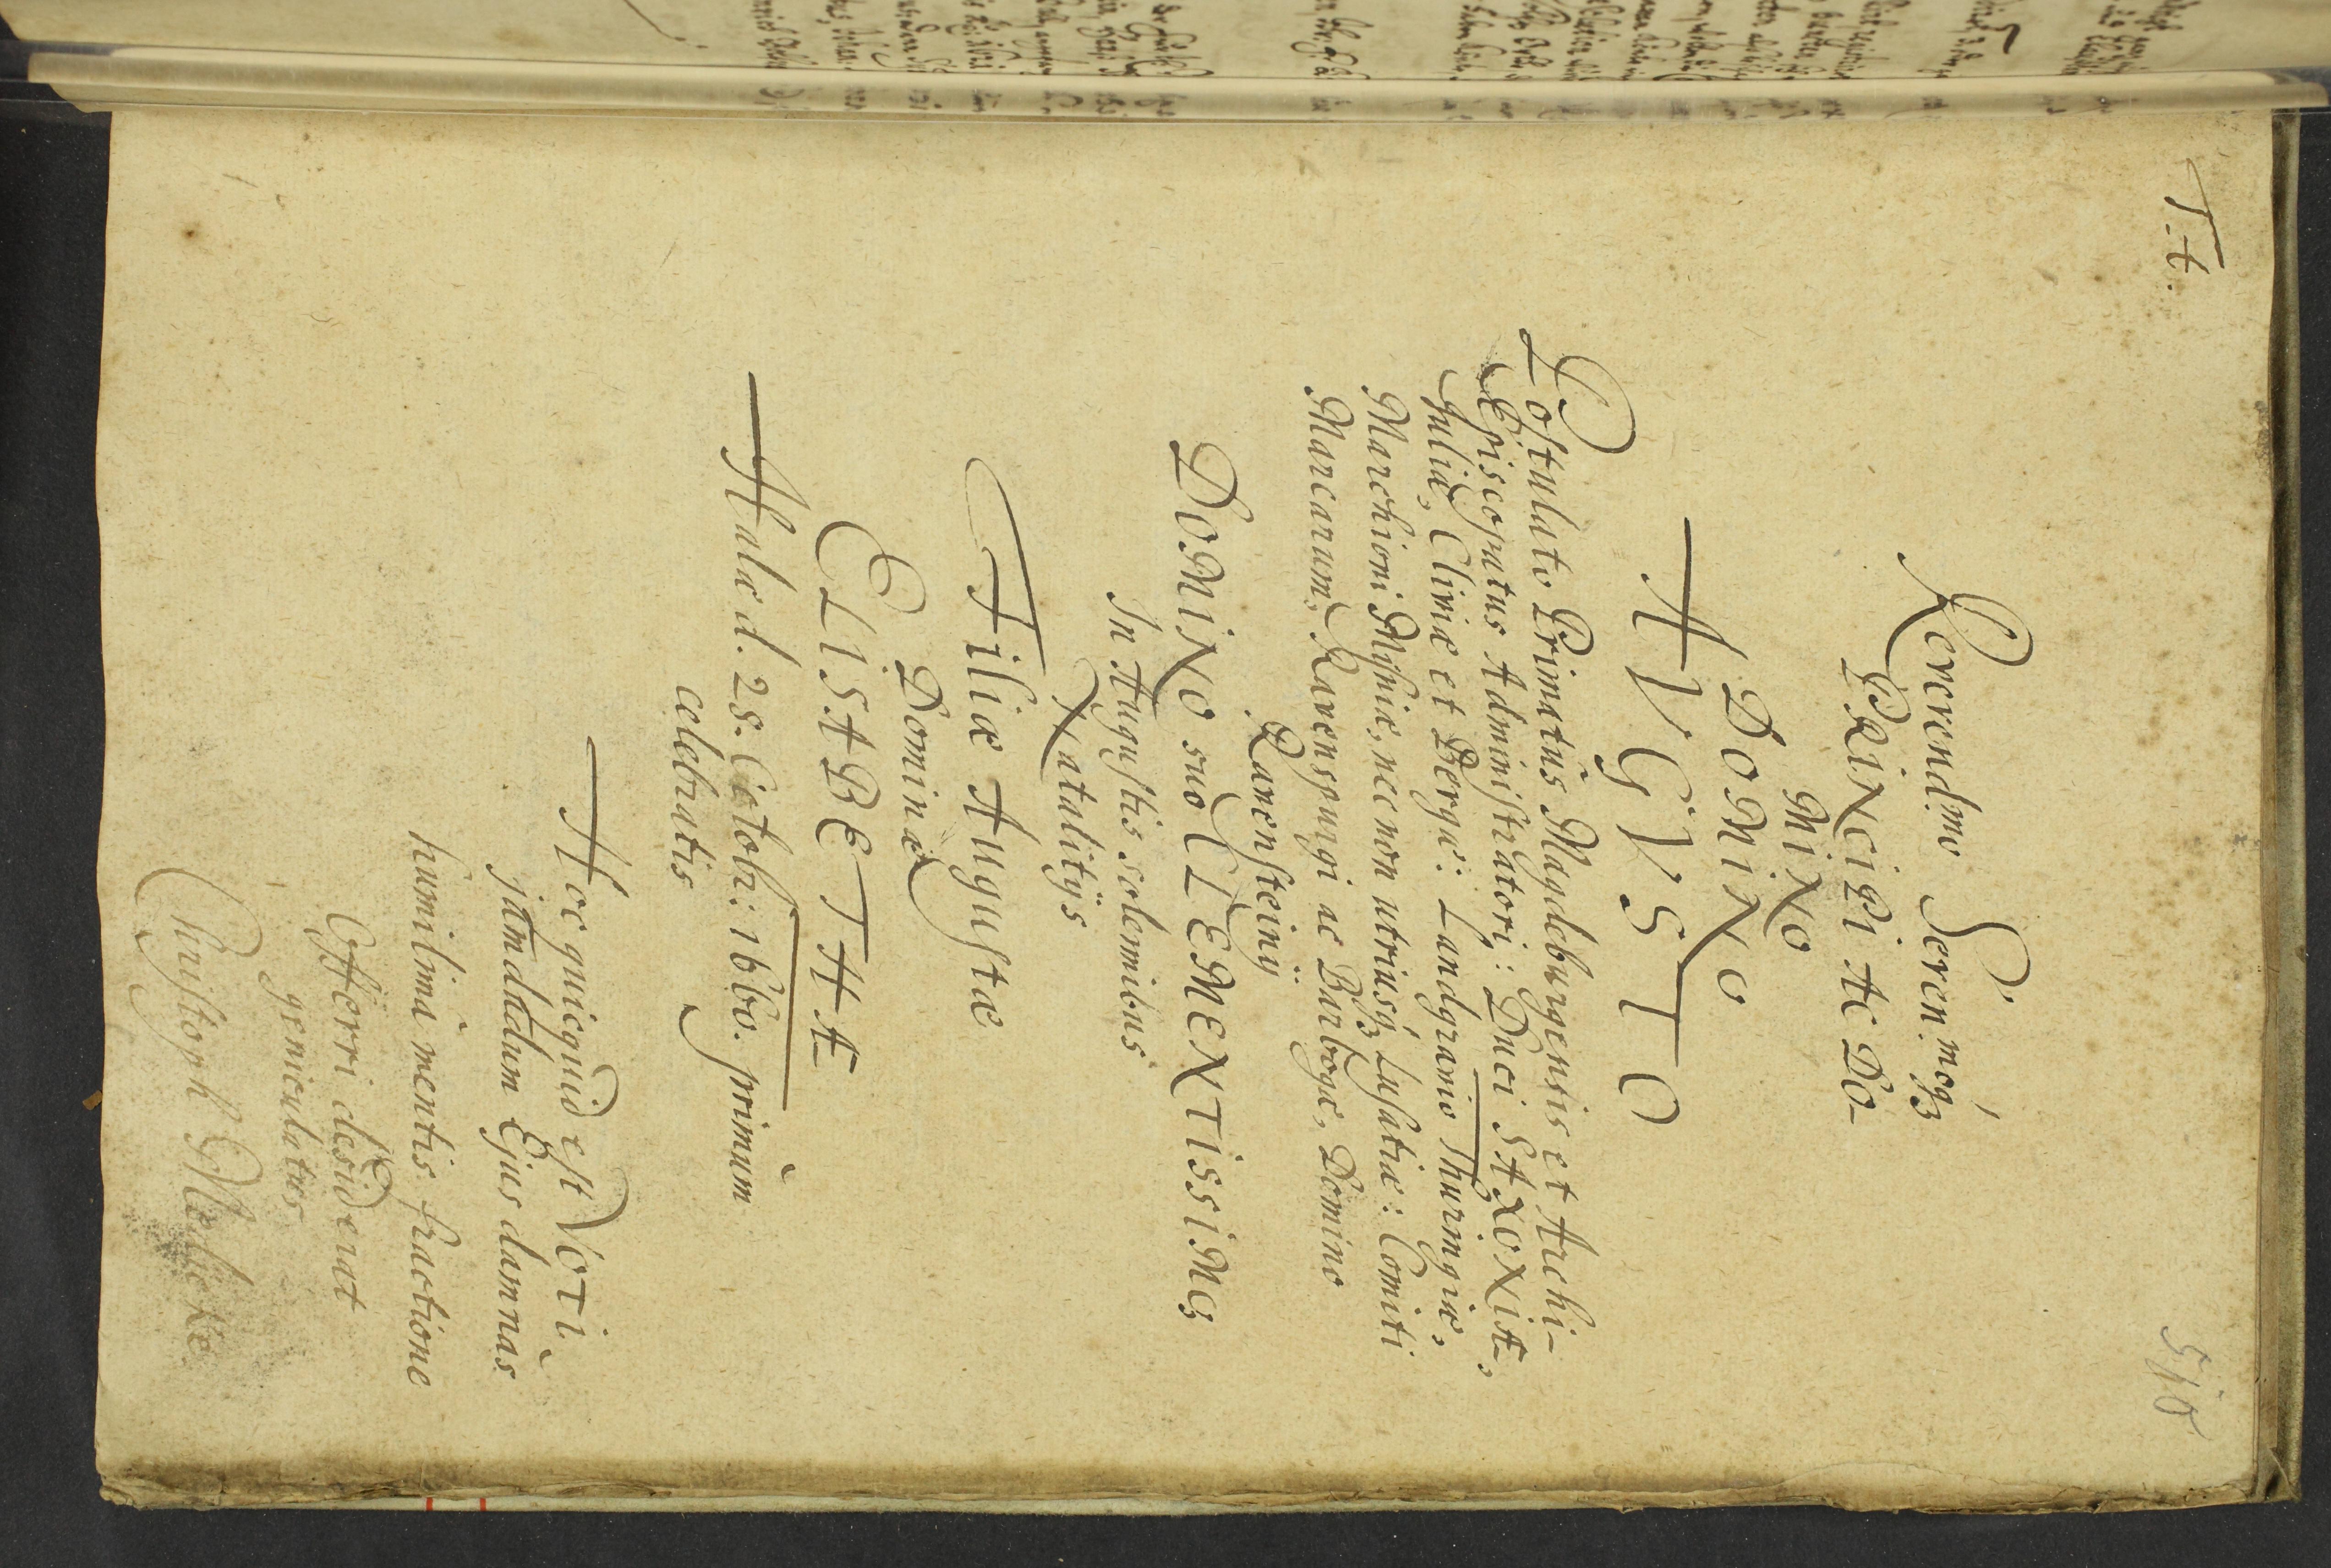 T. t.
518
Reverendmo Serenmoq3
PRiNCiPi Ac Do-
MiNo
DoMiNo
AVGVSTO
Postulato Primatus Magdeburgensis et Archi-
Episcopatus Administratori: Duci SAXONiÆ,
Juliæ, Cliviæ et Bergæ: Landgravio Thuringiæ,
Marchioni Misniæ, nec non utriusq3 Lusatiæ: Comiti
Marcarum, Ravenspurgi ac Barbogæ, Domino
Ravensteinÿ
DoMiNo suo CLEMENTISSiMo
In Augustis solemibus
Natalitÿs
Filiæ Augustæ
Dominæ
ELISABETHÆ
Halæ d. 25. Octobr: 1660. primum
celebratis
Hoc quicquid est VoTi
jamdudum Ejus damnas
humilimâ mentis fractione
Offerri desiderat
geniculatus
Christoph